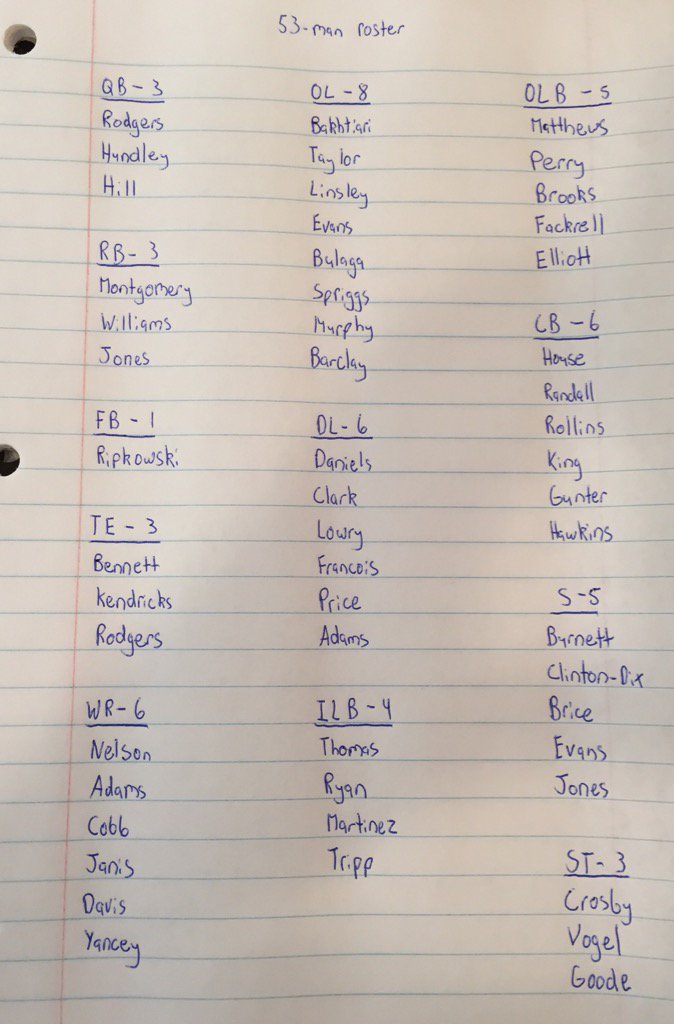 53-man roster
QB - 3
Rodgers
Hundley
Hill
RB - 3
Montgomery
Williams
Jones
FB - 1
Ripkowski
TE - 3
Bennett
Kendricks
Rodgers
WR - 6
Nelson
Adams
Cobb
Janis
Davis
Yancey
OL - 8
Bakhtiari
Taylor
Linsley
Evans
Bulaga
Spriggs
Murphy
Barclay
DL - 6
Daniels
Clark
Lowry
Francois
Price
Adams
ILB - 4
Thomas
Ryan
Martinez
Tripp
OLB - 5
Matthews
Perry
Brooks
Fackrell
Elliott
CB - 6
House
Randall
Rollins
King
Gunter
Hawkins
S - 5
Burnett
Clinton-Dix
Brice
Evans
Jones
ST - 3
Crosby
Vogel
Goode